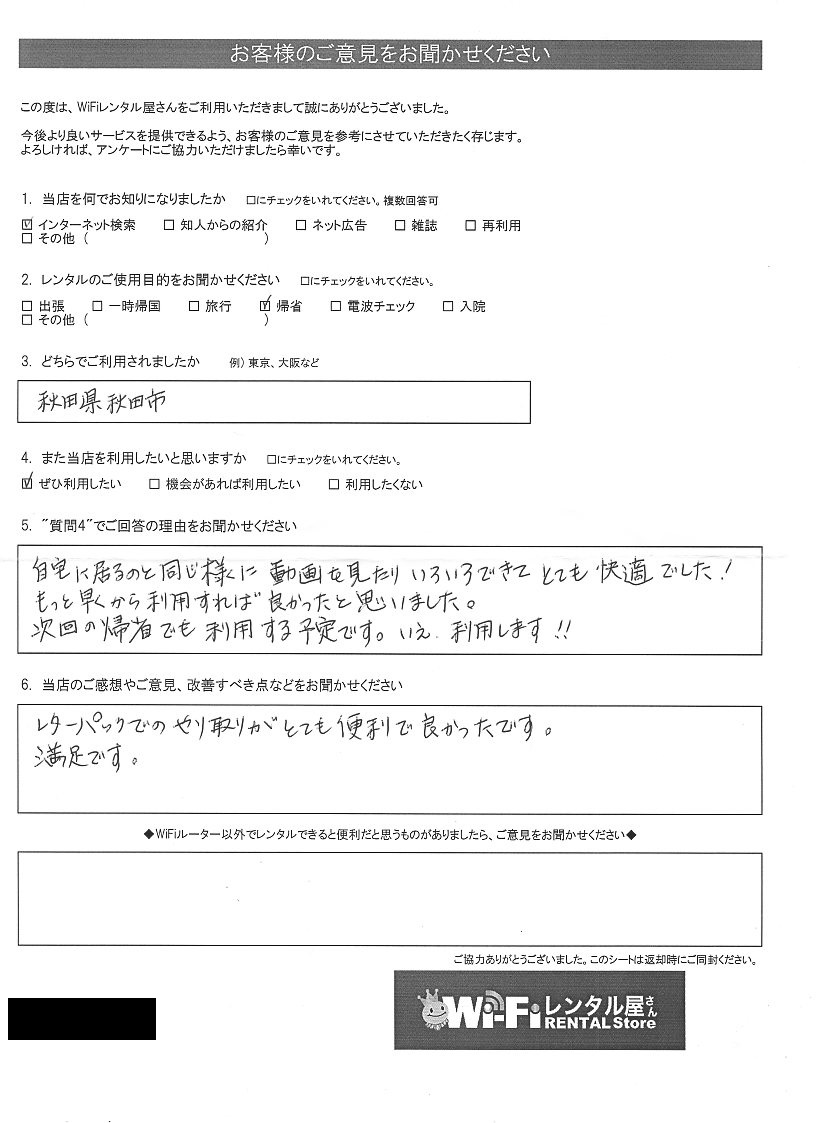 お客様のご意見をお聞かせください
この度は、WiFiレンタル屋さんをご利用いただきまして誠にありがとうございました。
今後より良いサービスを提供できるよう、お客様のご意見を参考にさせていただきたく存じます。
よろしければ、アンケートにご協力いただけましたら幸いです。
1. 当店を何でお知りになりましたか □にチェックをいれてください。複数回答可
☑ インターネット検索 □ 知人からの紹介 □ ネット広告 □ 雑誌 □ 再利用
□ その他 ( )
2. レンタルのご使用目的をお聞かせください □にチェックをいれてください。
□ 出張 □ 一時帰国 □ 旅行 ☑ 帰省 □ 電波チェック □ 入院
□ その他 ( )
3. どちらでご利用されましたか 例) 東京、大阪など
秋田県秋田市
4. また当店を利用したいと思いますか □にチェックをいれてください。
☑ ぜひ利用したい □ 機会があれば利用したい □ 利用したくない
5. "質問4"でご回答の理由をお聞かせください
自宅に居るのと同じ様に動画を見たりいろいろできてとても快適でした!
もっと早くから利用すれば良かったと思いました。
次回の帰省でも利用する予定です。いえ、利用します!!
6. 当店のご感想やご意見、改善すべき点などをお聞かせください
レターパックでのやり取りがとても便利で良かったです。
満足です。
◆WiFiルーター以外でレンタルできると便利だと思うものがありましたら、ご意見をお聞かせください◆
ご協力ありがとうございました。このシートは返却時にご同封ください。
Wi-Fiレンタル屋さん
RENTAL Store